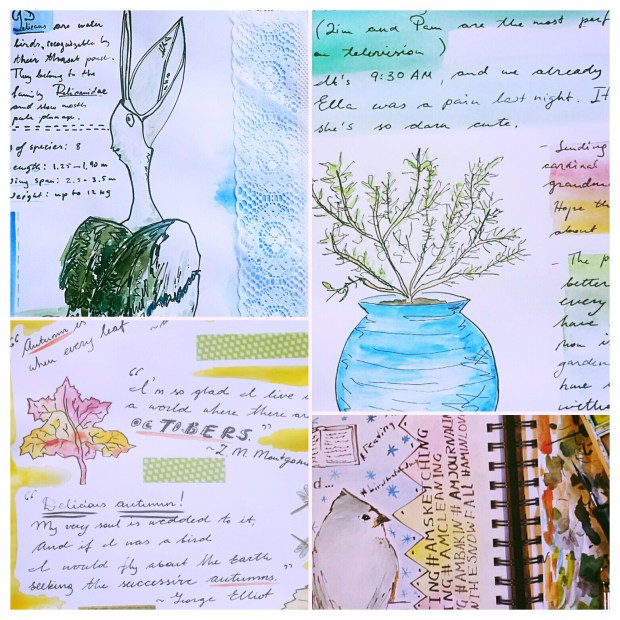 Pelicans are water
birds, recognizable by
their throat pouch.
They belong to the
family Pelecanidae
and show mostly
pale plumage.
of species: 8
length: 1.25-1.90 m
wing span: 2.5-3.5m
weight: up to 12 kg
(Jim and Pam are the most perf
on television)
It's 9:30 AM, and we already
Ella was a pain last night. I
she's so darn cute.
- Sending
cardinal
grandm
Hope th
about
- The p
better
every
have
now i
garden
have
" Autumn is
when every leaf
"I'm so glad I live i
a world where there are
OCTOBERS."
~ L. M. Montgome
"Delicious autumn!
My very soul is wedded to it,
And if I was a bird
I would fly about the Earth
seeking the successive autumns."
~ George Elliot
#Reading
d...
ING #AMSKETCHING
ING #AMCLEANING
NG #AMBAKIN #AMJOURNALIN
NTHESNOWFALL #AMINLOV